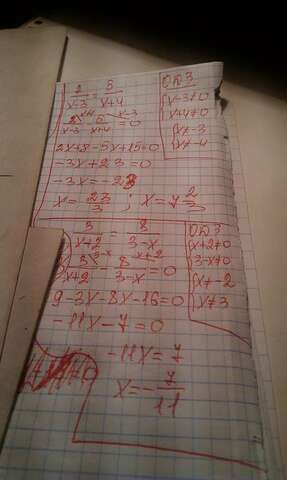 2/(x-3) = 5/(x+4)
2^(x+4)/(x-3) - 5^(x-3)/(x+4) = 0
2x+8-5x+15=0
-3x+23=0
-3x=-23
x= 23/3 ; x=7 2/3
ОДЗ
{x-3≠0
x+4≠0
{x≠3
x≠-4
3/(x+2) = 8/(3-x)
3^(3-x)/(x+2) - 8^(x+2)/(3-x) = 0
9-3x-8x-16=0
-11x-7=0
-11x=7
x=-7/11
ОДЗ
{x+2≠0
3-x≠0
{x≠-2
x≠3